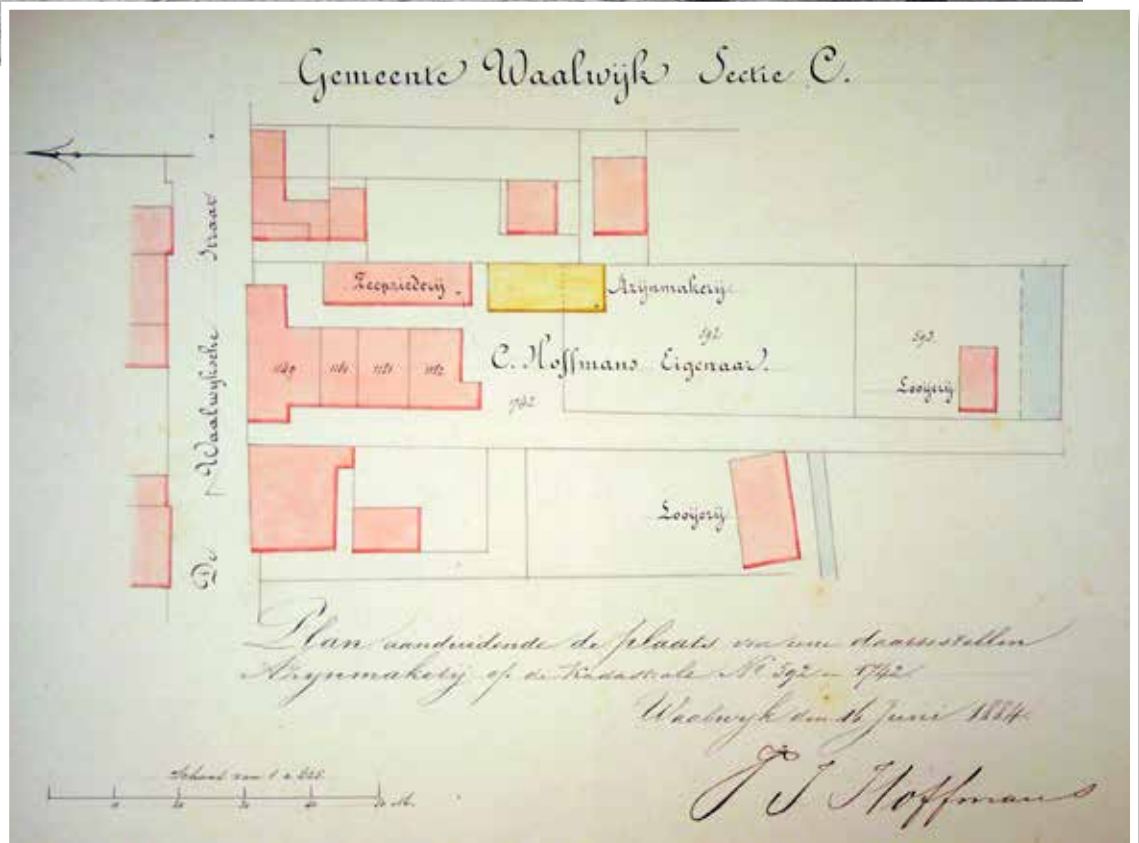 Gemeente Waalwijk Sectie C.
De Waalwijksche Straat
Zeepziederij
Azijnmakerij
592
593
Looijerij
C. Hoffmans Eigenaar.
1149
1182
1742
Looijerij
Plan aanduidende de plaats van eene daartestellen
Azijnmakerij op de Kadastrale No 592 en 1742
Waalwijk den 16 Juni 1884
Schaal van 1 a
10 20 30 40 50 M.
J J Hoffmans